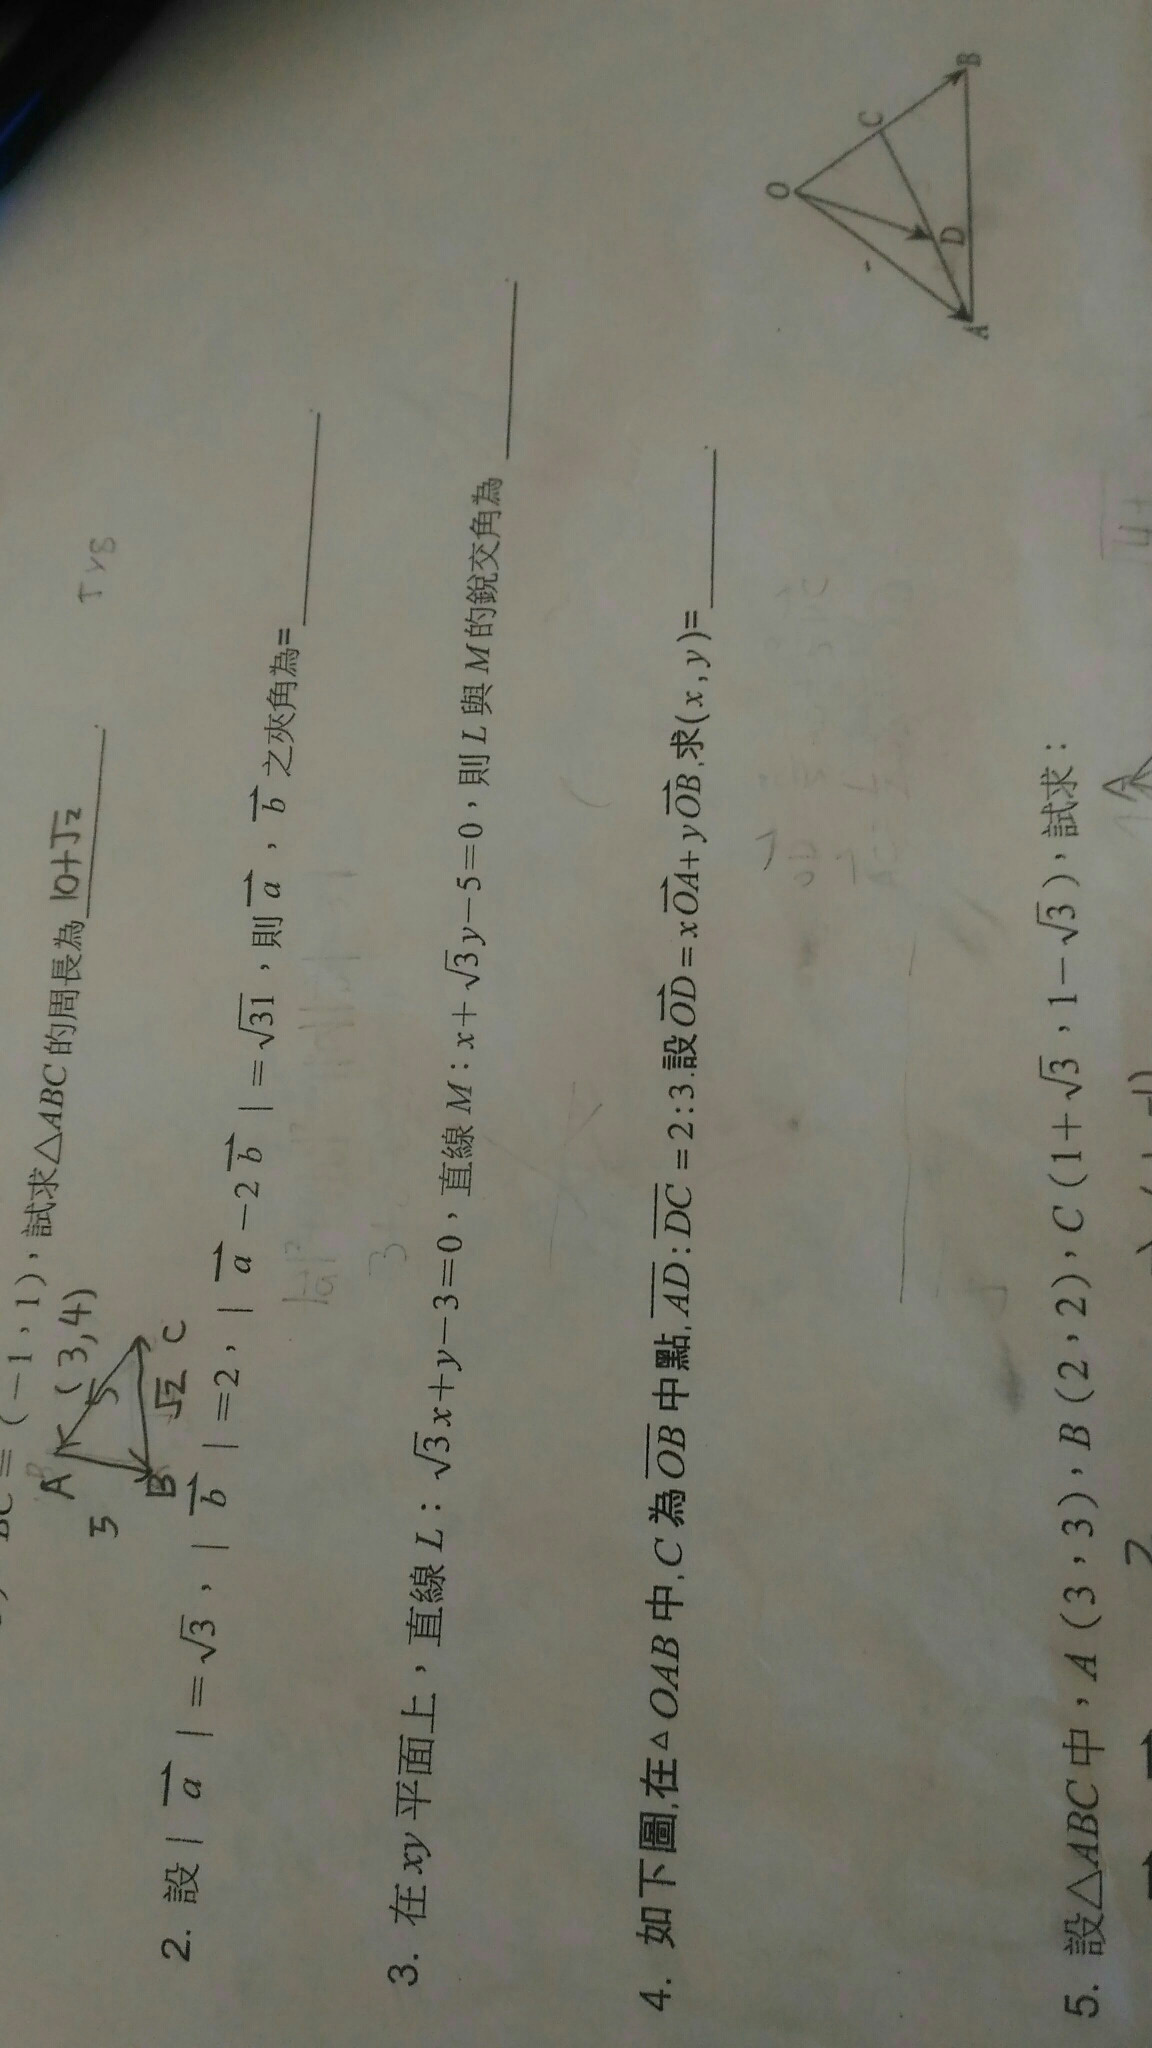 BC = (-1,1),試求△ABC的周長為 10+√2
A (3,4)
5 5
B √2 C
2. 設|a⃗|=√3,|b⃗|=2,|a⃗-2b⃗|=√31,則a⃗,b⃗之夾角為=
3. 在xy平面上,直線L:√3x+y-3=0,直線M:x+√3y-5=0,則L與M的銳交角為
4. 如下圖,在△OAB中,C為OB中點,AD:DC=2:3.設OD=xOA+yOB,求(x,y)=
O
C
D
A
B
5. 設△ABC中,A(3,3),B(2,2),C(1+√3,1-√3),試求: